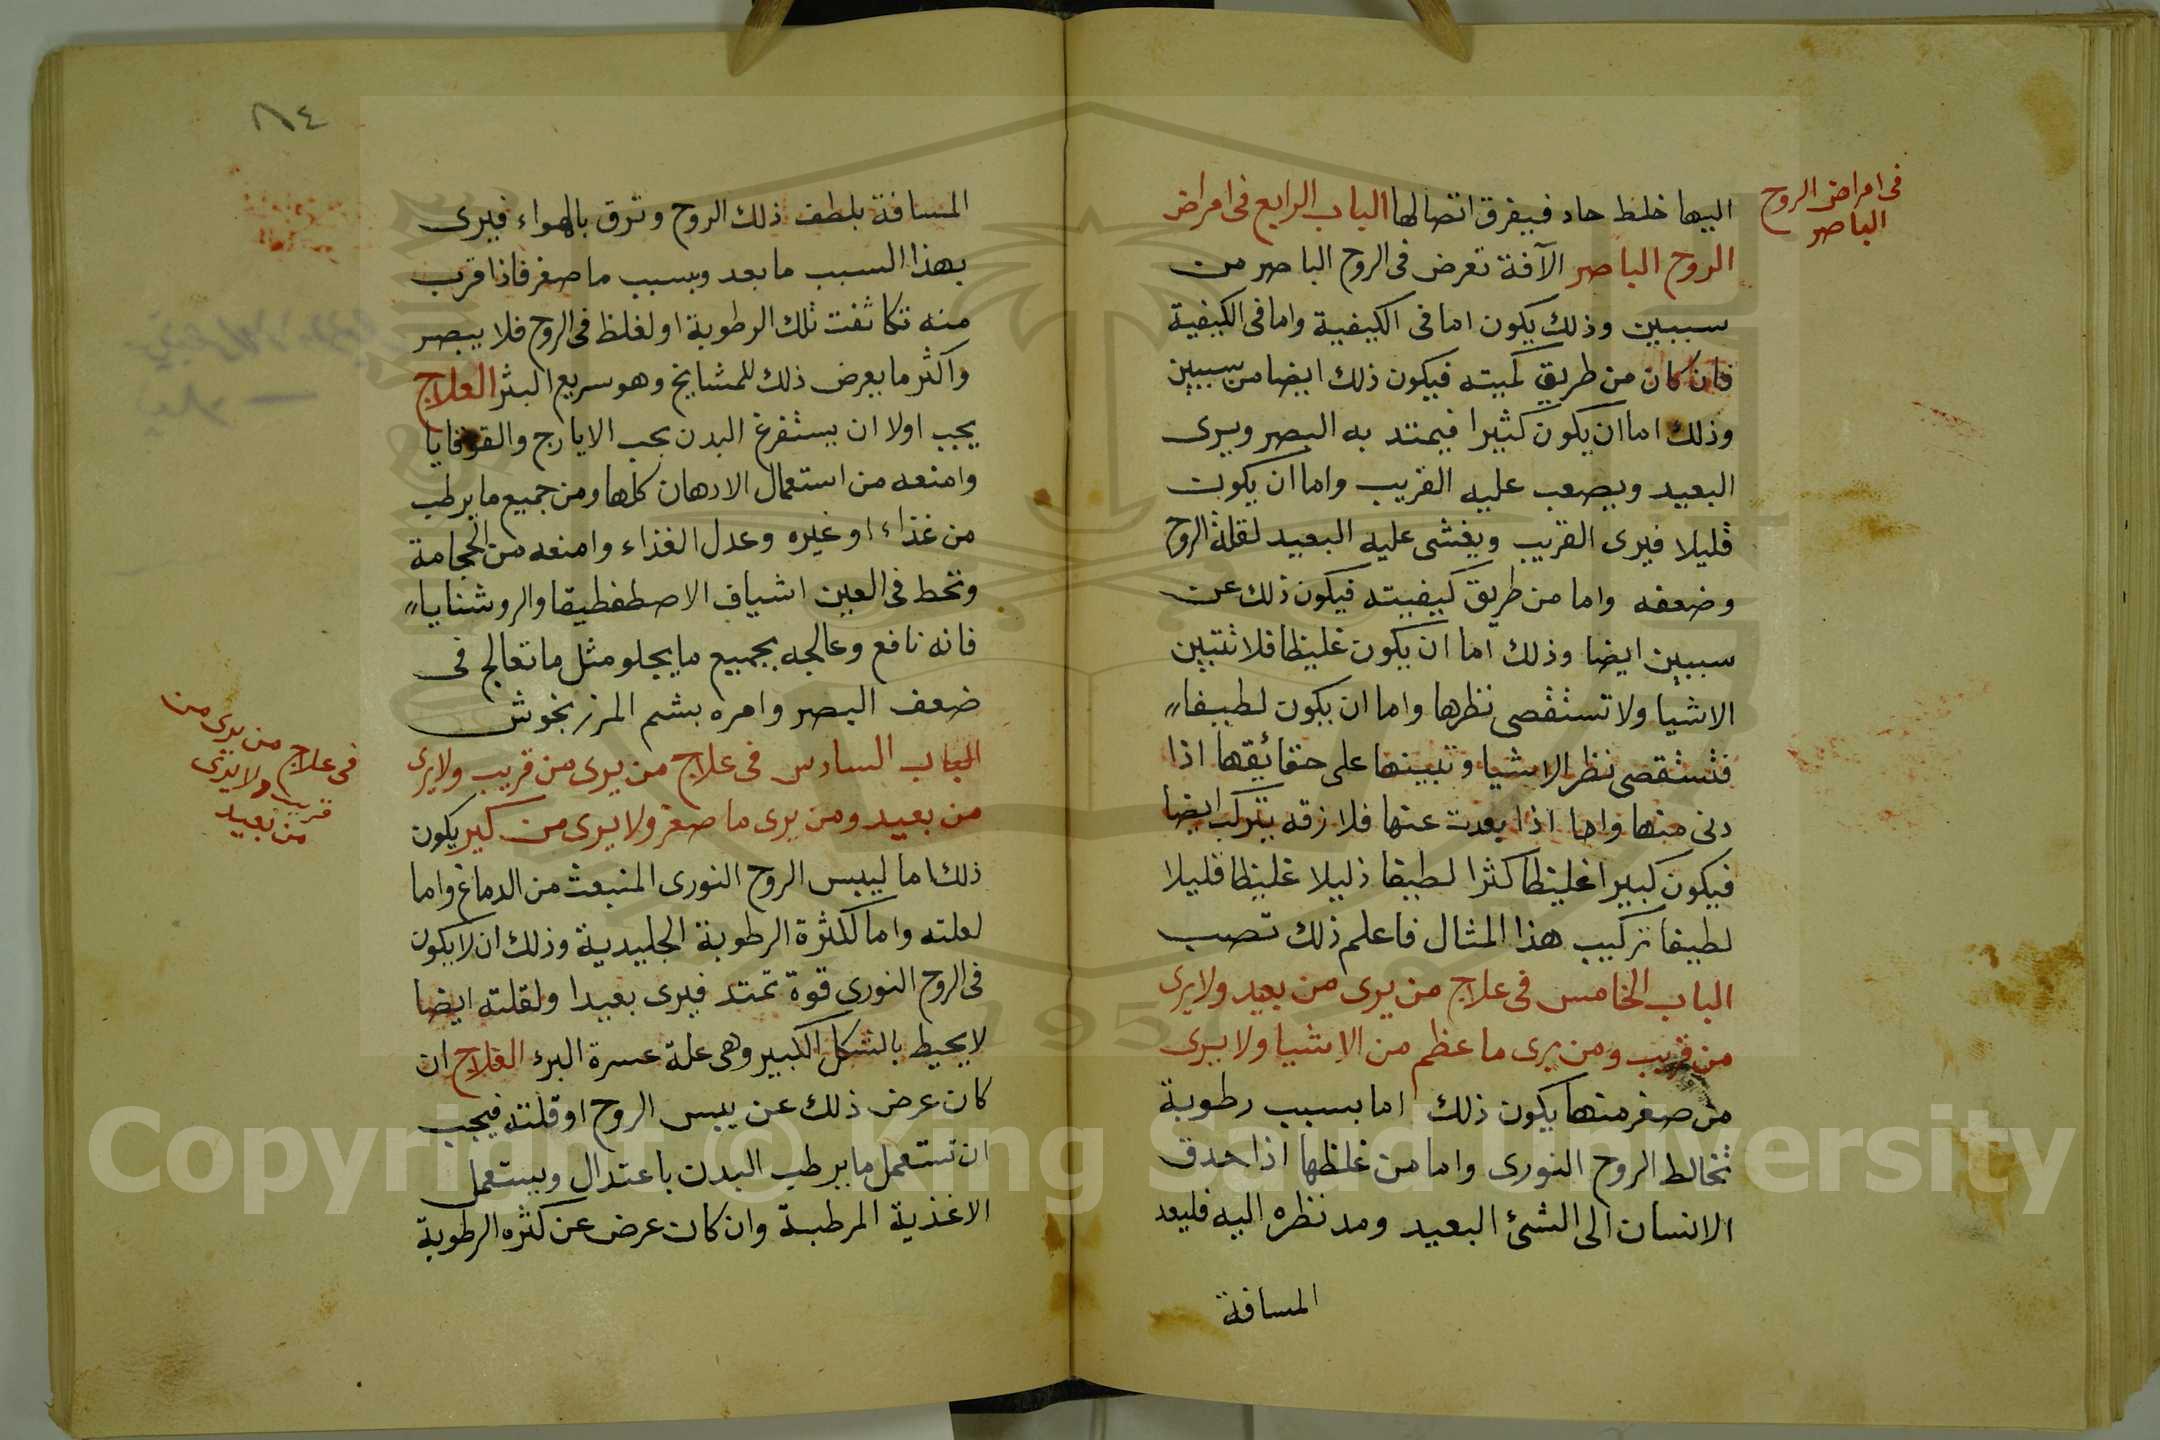 فى امراض الروح
الباصر
اليها خلط حاد فيفرق اتصالها الباب الرابع فى امراض
الروح الباصر الآفة تعرض فى الروح الباصر من
سببين وذلك يكون اما فى الكيفية واما فى الكيفية
فان كان من طريق كميته فيكون ذلك ايضا من سببين
وذلك اما ان يكون كثيرا فيمتد به البصر ويرى
البعيد ويصعب عليه القريب واما ان يكون
قليلا فيرى القريب ويغشى عليه البعيد لقلة الروح
وضعفه واما من طريق كيفيته فيكون ذلك عن
سببين ايضا وذلك اما ان يكون غليظا فلا تتبين
الاشيا ولا تستقصى نظرها واما ان يكون لطيفا
فتستقصى نظر الاشيا وتبينها على حقائقها اذا
دنى منها واما اذا بعدت عنها فلا زقه يتركب ايضا
فيكون كبيرا غليظا كثرا لطيفا ذليلا غليظا قليلا
لطيفا تركيب هذا المثال فاعلم ذلك تصب
الباب الخامس فى علاج من يرى من بعيد ولا يرى
من قريب ومن يرى ما عظم من الاشيا ولا يرى
من صغر منها يكون ذلك اما بسبب رطوبة
تخالط الروح النورى واما من غلظها اذا حدق
الانسان الى الشئ البعيد ومد نظره اليه فليعد
المسافة
٨٤
المسافة بلطف ذلك الروح وترق بالهواء فيرى
بهذا السبب ما بعد وبسبب ما صغر فاذا قرب
منه تكاثفت تلك الرطوبة او لغلظ فى الروح فلا يبصر
واكثر ما يعرض ذلك للمشايخ وهو سريع البثر العلاج
يجب اولا ان يستفرغ البدن بحب الايارج والقوقايا
وامنعه من استعمال الادهان كلها ومن جميع ما يرطب
من غذاء او غيره وعدل الغذاء وامنعه من الحجامة
وتحط فى العين اشياف الاصطفطيقا والروشنايا
فانه نافع وعالجه بجميع ما يجلو مثل ما تعالج فى
ضعف البصر وامره بشم المرزنجوش
الباب السادس فى علاج من يرى من قريب ولا يرى
من بعيد ومن يرى ما صغر ولا يرى من كبر يكون
ذلك اما ليبس الروح النورى المنبعث من الدماغ واما
لعلته واما لكثرة الرطوبة الجليدية وذلك ان لا يكون
فى الروح النورى قوة تمتد فيرى بعيدا ولقلته ايضا
لا يحيط بالشكل الكبير وهى علة عسرة البرء العلاج ان
كان عرض ذلك عن يبس الروح او قلته فيجب
ان تستعمل ما يرطب البدن باعتدال ويستعمل
الاغذية المرطبة وان كان عرض عن كثره الرطوبة
فى علاج من يرى من
قريب ولا يرى
من بعيد
1957
Copyright © King Saud University